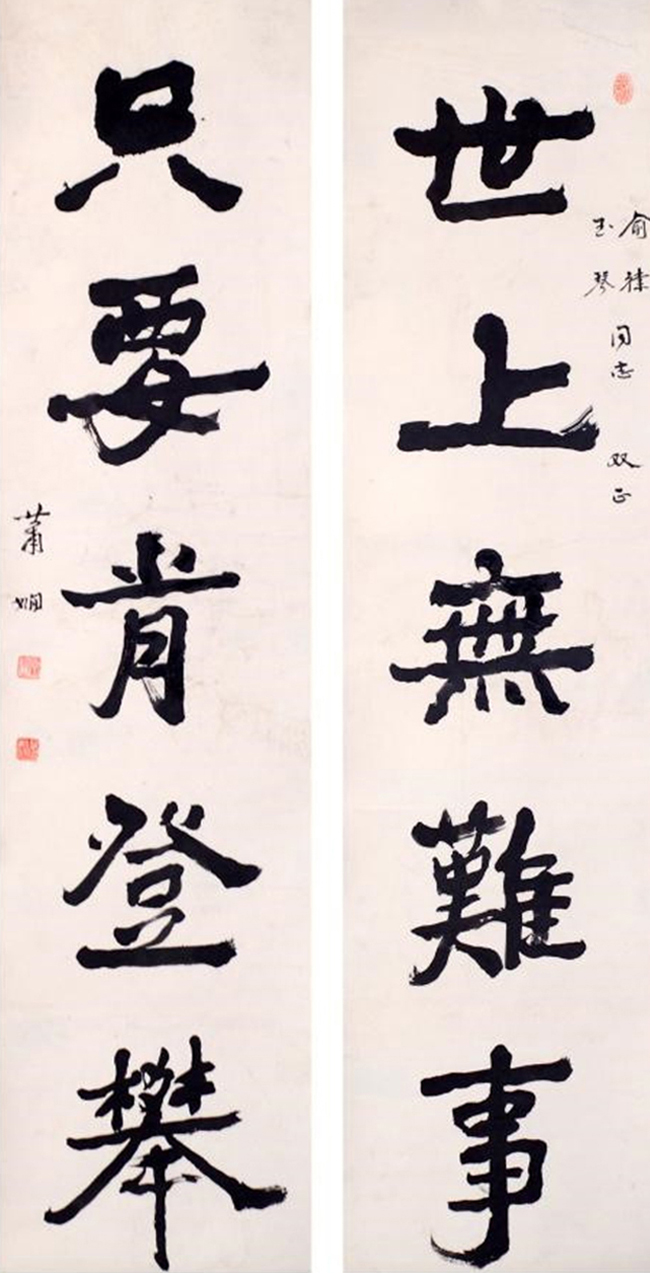 俞律
玉琴
同志 双正
世上無難事
只要肯登攀
蕭嫻